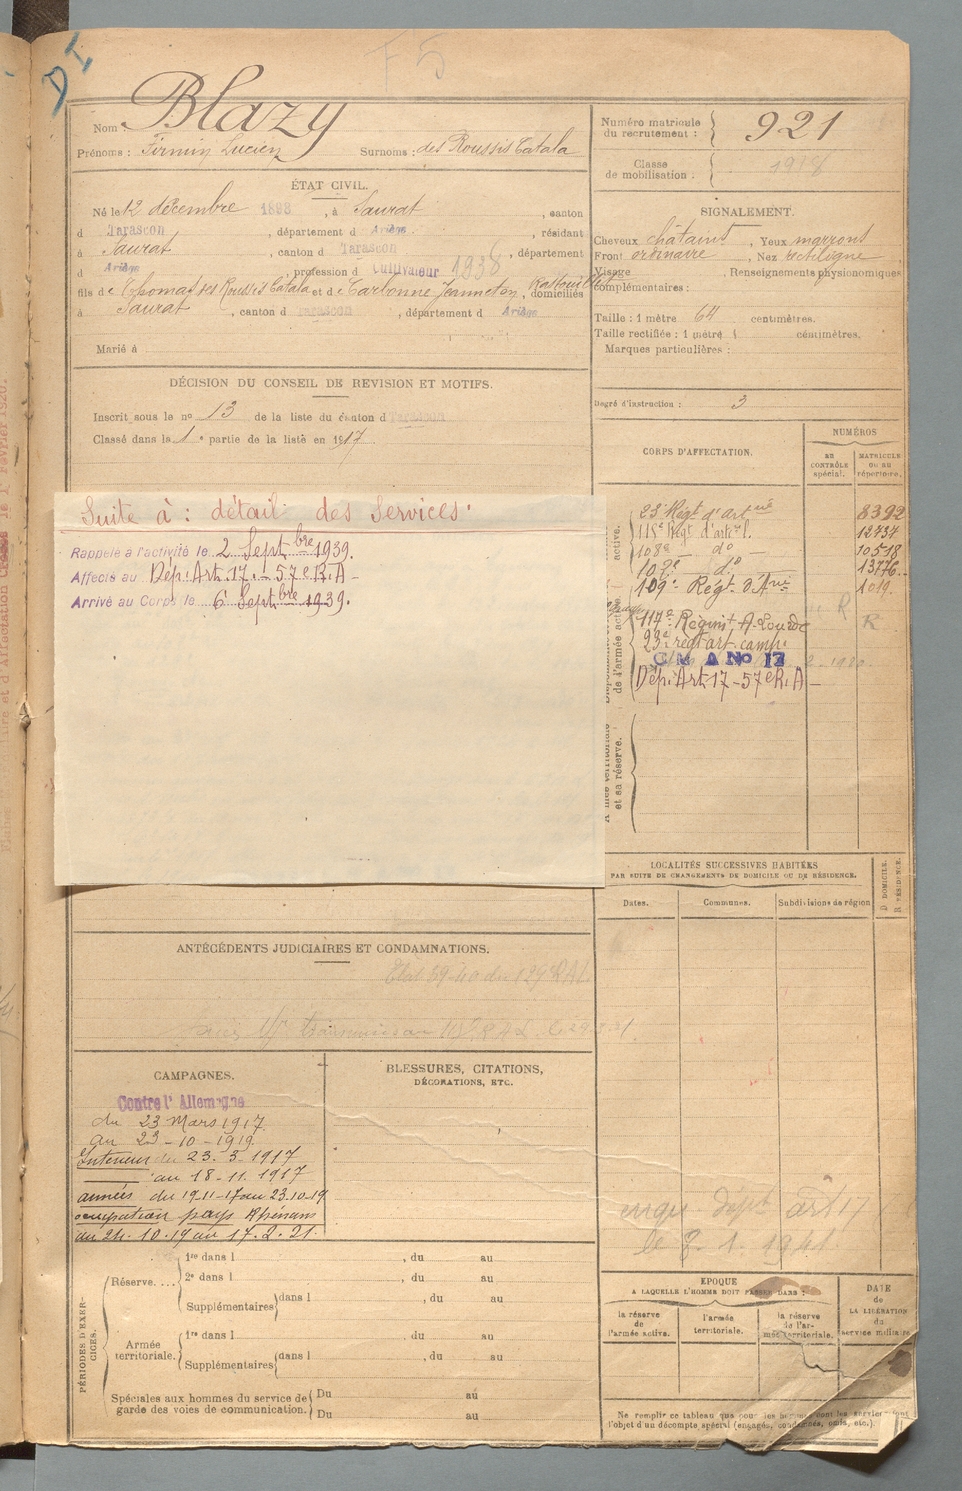 DI
F5
Nom : Blazy
Prénoms : Firmin Lucien Surnoms : des Roussis Catala
Numéro matricule du recrutement : 921
Classe de mobilisation : 1918
ÉTAT CIVIL.
Né le 12 décembre 1898, à Saurat, canton
d Tarascon, département d Ariège, résidant
à Saurat, canton d Tarascon, département
d Ariège, profession d Cultivateur 1938
fils de Thomas des Roussis Catala et de Carbonne Jeanneton, domiciliés
à Saurat, canton d Tarascon, département d Ariège
Marié à
SIGNALEMENT.
Cheveux châtains, Yeux marrons
Front ordinaire, Nez rectiligne
Visage, Renseignements physionomiques
complémentaires :
Taille : 1 mètre 64 centimètres.
Taille rectifiée : 1 mètre centimètres.
Marques particulières :
Degré d'instruction : 3
DÉCISION DU CONSEIL DE REVISION ET MOTIFS.
Inscrit sous le no 13 de la liste du canton d Tarascon
Classé dans la 1e partie de la liste en 1917
Suite à : détail des Services.
Rappelé à l'activité le 2 Septbre 1939.
Affecté au Dép. Art. 17 - 57e R.A -
Arrivé au Corps le 6 Septbre 1939.
CORPS D'AFFECTATION.
NUMÉROS
AU CONTRÔLE spécial.
MATRICULE OU AU répertoire.
active.
23e Régt d'artie 8392
115e Régt d'artie l. 12737
108e - do - 10518
107e - do 13776
109e Régt d'Arie 1019.
de l'armée active
117e Regimt A. Lourde R
23e régt art. camp.
C M A No 17
Dép. Art. 17 - 57e R.A -
Armée territoriale et sa réserve.
LOCALITÉS SUCCESSIVES HABITÉES
PAR SUITE DE CHANGEMENTS DE DOMICILE OU DE RÉSIDENCE.
Dates.
Communes.
Subdivisions de région
D DOMICILE.
R RÉSIDENCE.
ANTÉCÉDENTS JUDICIAIRES ET CONDAMNATIONS.
CAMPAGNES.
Contre l'Allemagne
du 23 Mars 1917
au 23-10-1919.
Intérieur du 23-3-1917
au 18-11-1917
armées du 19-11-17 au 23.10-19
occupation pays Rhénans
du 24.10.19 au 17.2.21.
BLESSURES, CITATIONS,
DÉCORATIONS, ETC.
PÉRIODES D'EXERCICES.
Réserve....
1re dans l , du au
2e dans l , du au
Supplémentaires dans l , du au
Armée territoriale.
1re dans l , du au
Supplémentaires dans l , du au
Spéciales aux hommes du service de garde des voies de communication.
Du au
Du au
le 8.1.1941.
EPOQUE
A LAQUELLE L'HOMME DOIT PASSER DANS :
la réserve de l'armée active.
l'armée territoriale.
la réserve de l'armée territoriale.
DATE de LA LIBÉRATION du service militaire
Ne remplir ce tableau que pour les hommes dont les services font
l'objet d'un décompte spécial (engagés, condamnés, omis, etc.).